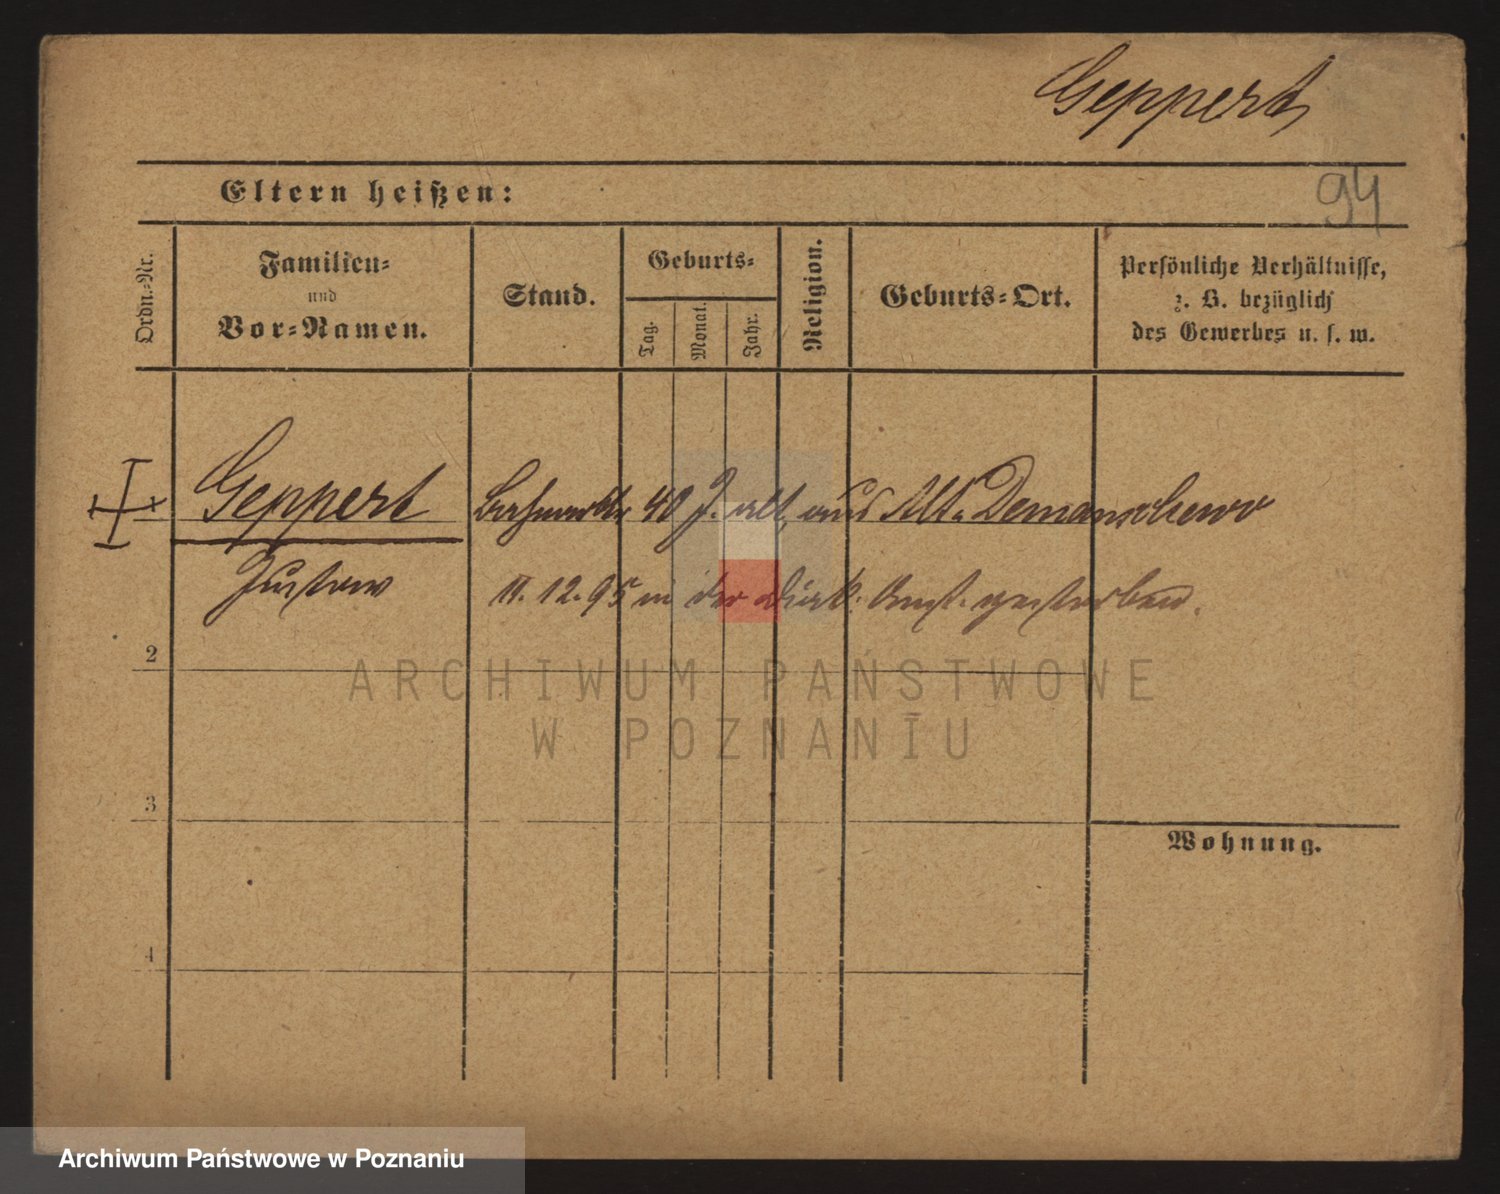 Geppert
94
Eltern heißen:
Ordn.-Nr.
Familien-
und
Vor-Namen.
Stand.
Geburts-
Tag.
Monat.
Jahr.
Religion.
Geburts-Ort.
Persönliche Verhältnisse,
z. B. bezüglich
des Gewerbes u. s. w.
Geppert 40 J. alt, aus Alt-Demanschewo
Gustav 11.12.95 in der gestorben.
2
3
4
Wohnung.
ARCHIWUM PAŃSTWOWE
W POZNANIU
Archiwum Państwowe w Poznaniu